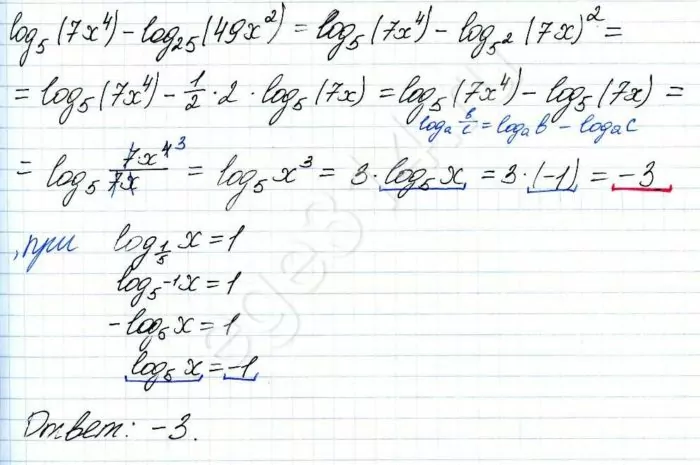 log₅(7x⁴) - log₂₅(49x²) = log₅(7x⁴) - log₅²(7x)² =
= log₅(7x⁴) - 1/2 · 2 · log₅(7x) = log₅(7x⁴) - log₅(7x) =
logₐ b/c = logₐb - logₐc
= log₅ 7x⁴³/7x = log₅x³ = 3 · log₅x = 3 · (-1) = -3
, при log₁/₅ x = 1
log₅-1x = 1
-log₅x = 1
log₅x = -1
Ответ: -3.